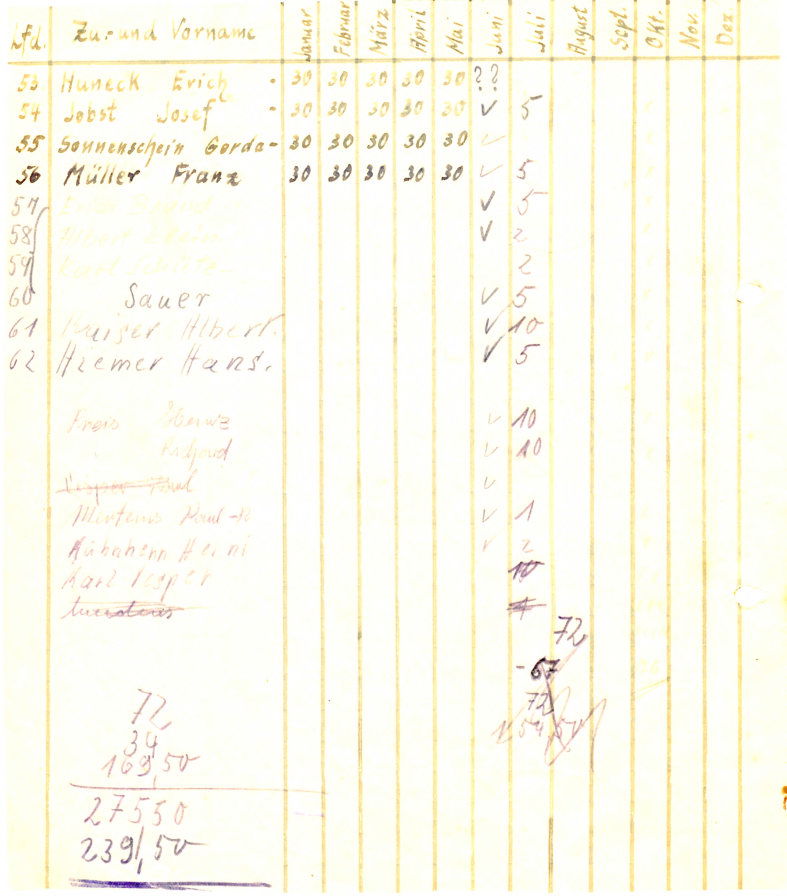 Lfd. Zu- und Vorname Januar Februar März April Mai Juni Juli August Sept. Okt. Nov. Dez
53 Huneck Erich - 30 30 30 30 30 ??
54 Jobst Josef - 30 30 30 30 30 ✓ 5
55 Sonnenschein Gerda - 30 30 30 30 30 ✓
56 Müller Franz 30 30 30 30 30 ✓ 5
57 Erich ✓ 5
58 Albert Klein ✓ 2
59 Karl Schütz 2
60 Sauer ✓ 5
61 Kaiser Albert. ✓ 10
62 Hiemer Hans. ✓ 5
Freis ✓ 10
✓ 10
Vesper Paul ✓
Mertens Paul ✓ 1
✓ 2
Karl Vesper 10
1
72
- 67
72
72
34
169,50
27550
239,50